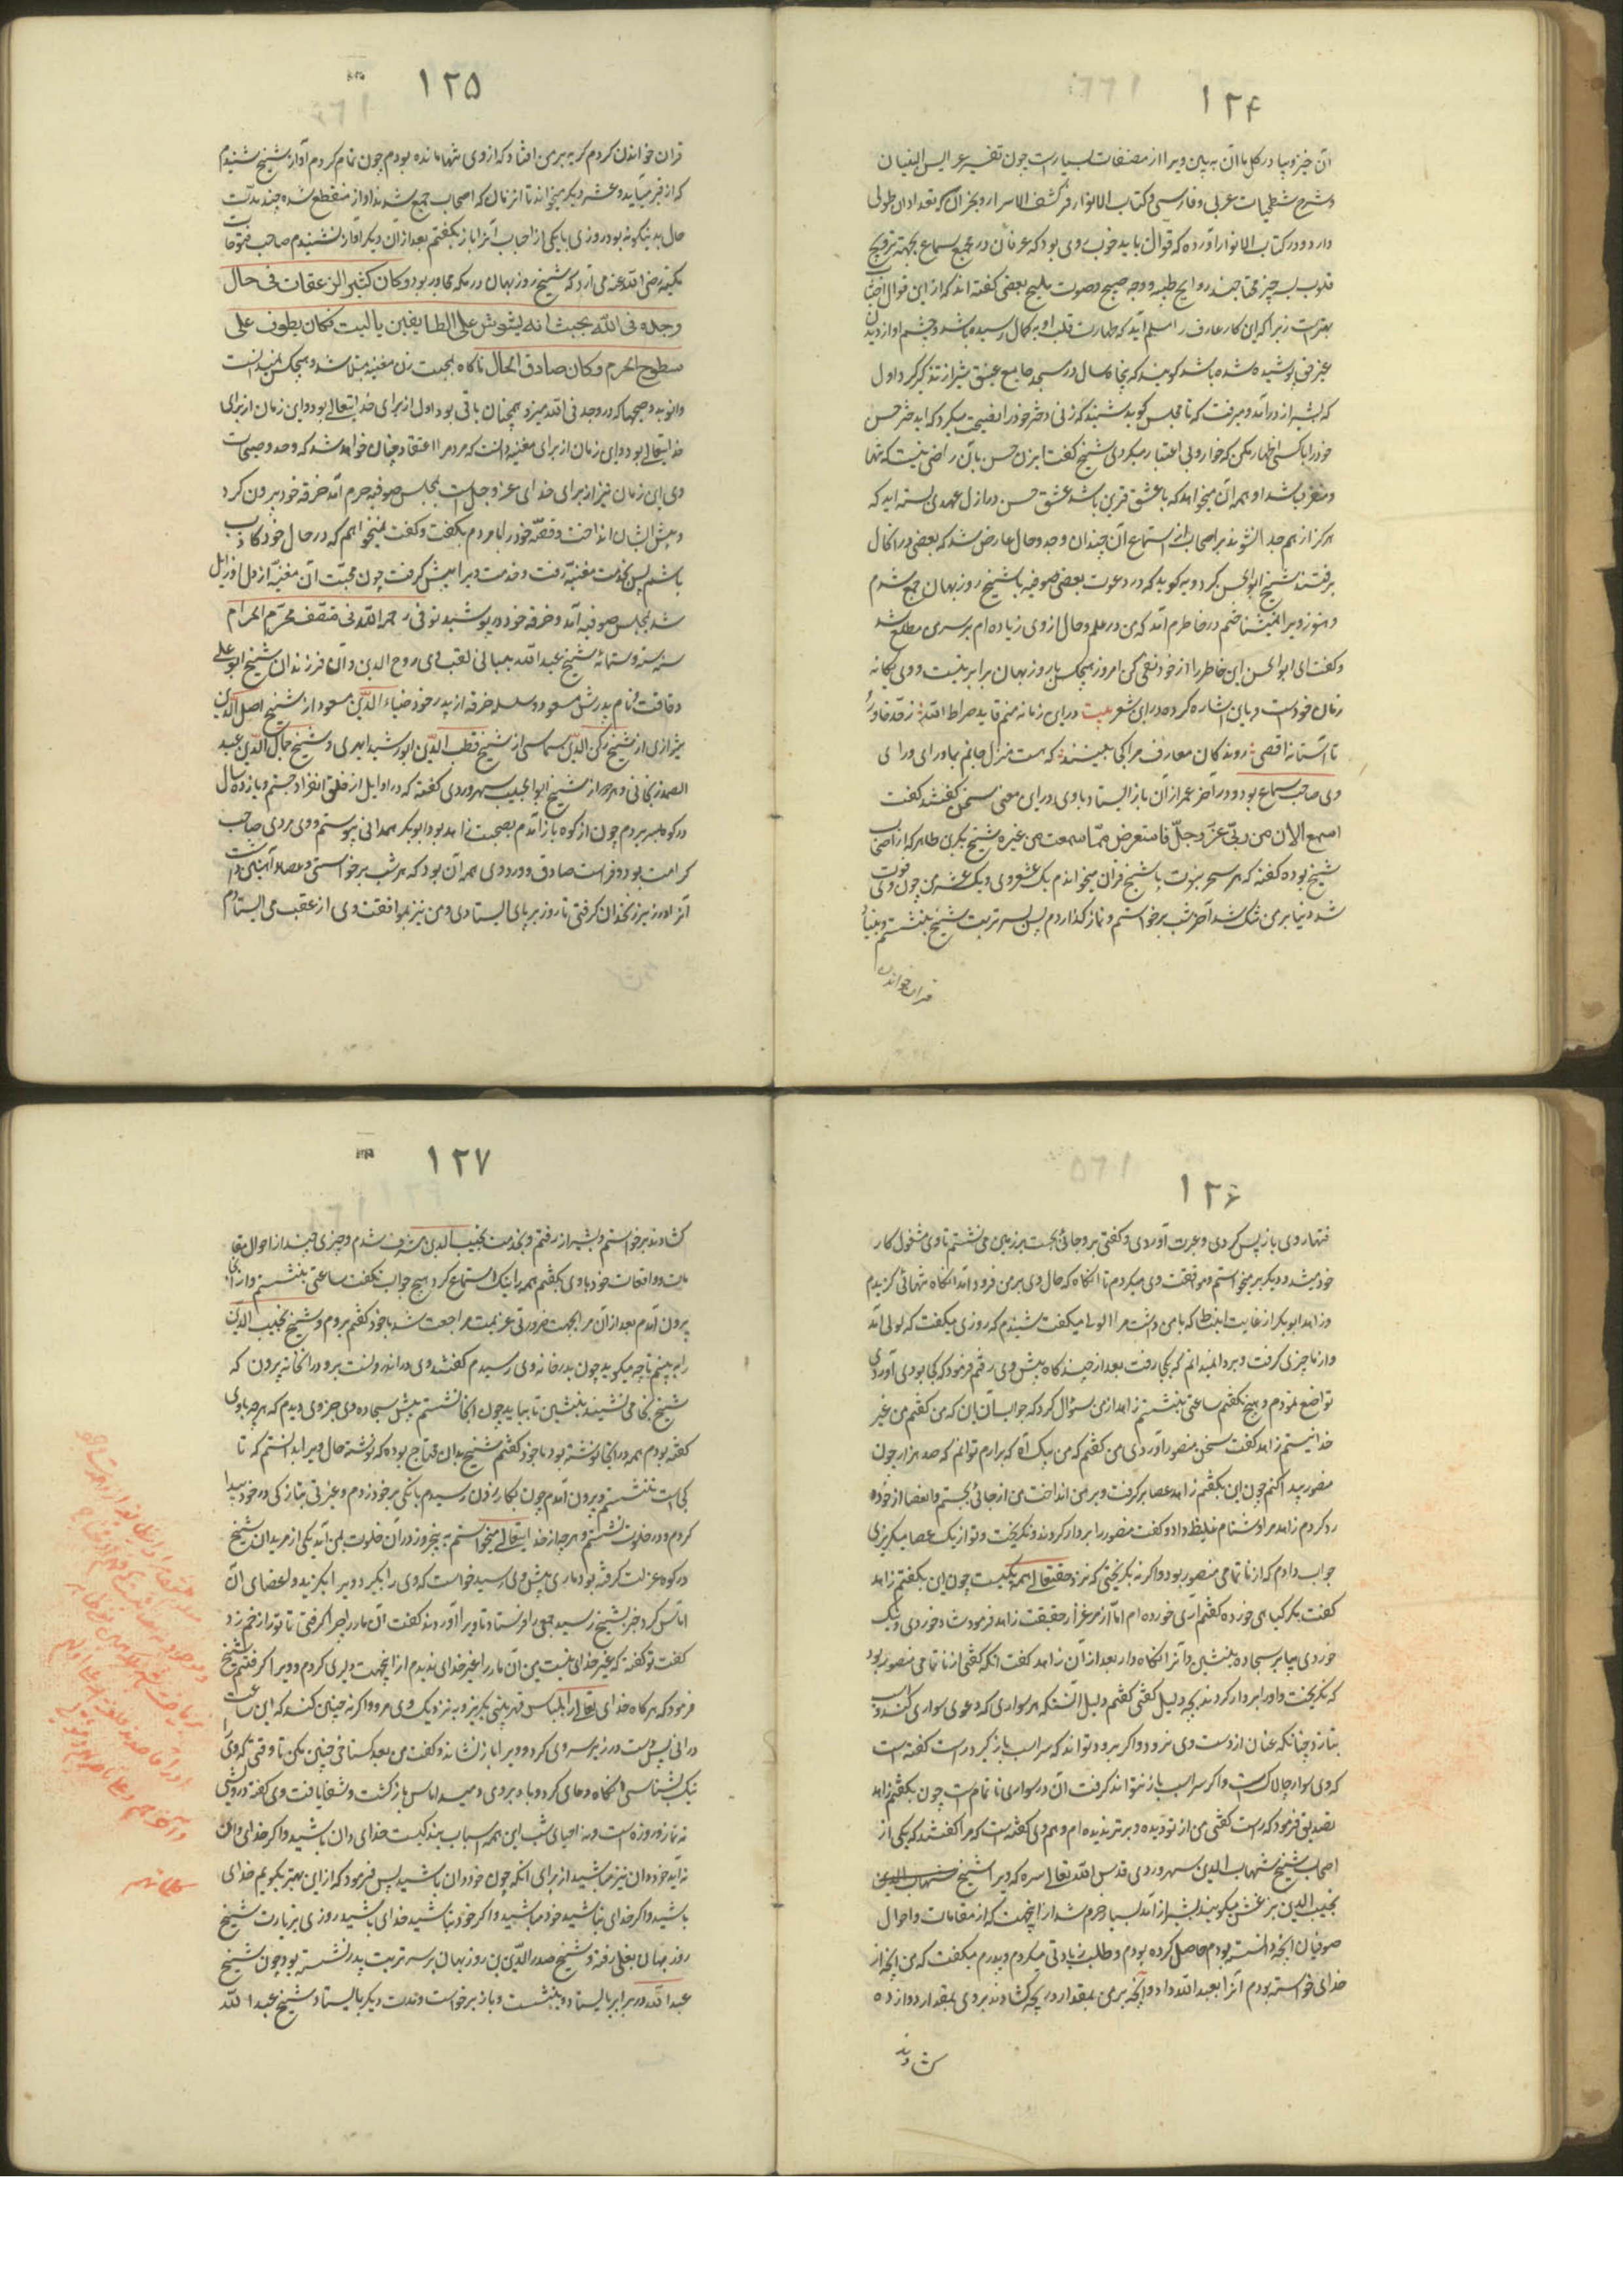 ۱۲۴
آن خیز و بپا در کل با آن به بین ویرا از مصنفات بسیارست چون تفسیر عرایس البیان
و شرح شطحیات عربی و فارسی و کتاب الانوار فی کشف الاسرار و بخزان که تعداد آن طولی
دارد و در کتاب الانوار آورده که قوال باید خوب روی بود که عرفان در مجمع سماع بجهت ترویح
قلوب بسه چیز محتاجند روایح طیبه و وجه صبیح و صوت ملیح بعضی گفته اند که از این قوال اجتناب
بهترست زیرا که این کار عارف را مسلم آید که طهارت قلب او به کمال رسیده باشد و چشم او از دیدن
غیر حق پوشیده شده باشد گویند که پنجاه سال در مسجد جامع عتیق شیراز تذکیر کرد اول
که بشیراز در آمد و میرفت که تا مجلس گوید شنید که زنی دختر خود را نصیحت میکرد که ای دختر حسن
خود را با کسی اظهار مکن که خوار و بی اعتبار میگردی شیخ گفت ای زن حسن بآن راضی نیست که تنها
و منفرد باشد او همه آن میخواهد که با عشق قرین باشد عشق و حسن در ازل عهدی بسته اند که
هرگز از هم جدا نشوند بر اصحاب از استماع آن چندان وجد و حال عارض شد که بعضی در آن حال
برفتند شیخ ابوالحسن کردویه گوید که در دعوت بعضی صوفیه با شیخ روزبهان جمع شدم
و هنوز ویرا نمیشناختم در خاطرم آمد که من در علم و حال از وی زیاده ام بر سر من مطلع شد
و گفت ای ابوالحسن این خاطر را از خود نفی کن امروز هیچکس با روزبهان برابر نیست و وی یگانه
زمان خود است و باین اشاره کرده در این شعر بیت در این زمانه منم قاید صراط الله ز حد خاور
تا آستانه اقصی روندگان معارف مرا کجا بینند که هست منزل جانم بماورای ورای
وی صاحب سماع بود و در آخر عمر از آن باز ایستاد با وی در این معنی سخن گفتند گفت
اسمع الان من ربی عز و جل فاستعرض مما سمعت من غیره شیخ ابوبکر بن طاهر که از اصحاب
شیخ بوده گفته که هر سحر بنوبت با شیخ قرآن میخواندم یک عشر وی و یک عشر من چون وی فوت
شد دنیا بر من تنگ شد آخر شب برخواستم و نماز گذاردم پس بسر تربت شیخ بنشستم و بنیاد
قرآن خواندن
۱۲۵
قرآن خواندن کردم گریه بر من افتاد که از وی تنها مانده بودم چون تمام کردم آواز شیخ شنیدم
که از قبر میآید و عشر دیگر میخواند تا آن زمان که اصحاب جمع شدند آواز منقطع شد چند مدت
حال بدینگونه بود روزی با یکی از اصحاب آنرا باز گفتم بعد از آن دیگر آواز نشنیدم صاحب فتوحات
مکیه رضی الله عنه می آرد که شیخ روزبهان در مکه مجاور بود و کان کثیر الزعقات فی حال
وجده فی الله بحیث انه یشوش علی الطایفین بالبیت فکان یطوف علی
سطوح الحرم و کان صادق الحال ناگاه بمحبت زن مغنیه مبتلا شد و هیچکس نمیدانست
و آن وجد و صیحها که در وجد فی الله میزد همچنان باقی بود اول از برای خدایتعالی بود و این زمان از برای
خدایتعالی بود و این زمان از برای مغنیه دانست که مردم را اعتقاد چنان خواهد شد که وجد و صیحات
وی این زمان نیز از برای خدای عز و جل است بمجلس صوفیه حرم آمد خرقه خود بیرون کرد
و پیش ایشان انداخت و قصه خود را با مردم بگفت و گفت نمیخواهم که در حال خود کاذب
باشم پس بخدمت مغنیه رفت و خدمت ویرا پیش گرفت چون محبت آن مغنیه از دل او زایل
شد بمجلس صوفیه آمد و خرقه خود در پوشید توفی رحمه الله فی منتصف محرم الحرام
سنه سته و ستمائه شیخ عبدالله بلیانی لقب وی روح الدین و آن فرزندان شیخ ابو علی
دقاقست و نام پدرش مسعود و سلسله خرقه از پدر خود ضیاء الدین مسعود از شیخ اصیل الدین
شیرازی از شیخ رکن الدین سماسی از شیخ قطب الدین ابو رشید ابهری و شیخ جمال الدین عبد
الصمد زنجانی و هر دو از شیخ ابوالنجیب سهروردی گفته که در اوایل از خلق انفراد جستم و یازده سال
در کوه بسر بردم چون از کوه باز آمدم بصحبت زاهد بود ابوبکر همدانی پیوستم و وی مردی صاحب
کرامت بود و فراست صادق و ورد وی همه آن بود که هر شب برخواستی و عصاء آهنین داشت
آنرا در زیر زنخدان گرفتی تا روز بر پای ایستادی و من نیز بموافقت وی از عقب می ایستادم
۱۲۶
فتها روی باز پس کردی و عبرت آوردی و گفتی برو جائی بخسب بر زمین می نشستم تا وی مشغول کار
خود میشد و دیگر بر میخواستم و موافقت وی میکردم تا آنگاه که حال وی بر من فرود آمد آنگاه تنهائی گزیدم
و زاهد ابوبکر از غایت انبساط که با من داشت مرا لولی میگفت شنیدم که روزی میگفت که لولی آمد
و از ما چیزی گرفت و ببرد و نمیدانم که بکجا رفت بعد از چندگاه پیش وی رفتم فرمود که کجا بودی چه آوردی
تواضع نمودم و هیچ نگفتم ساعتی بنشستم زاهد از من سؤال کرد که جواب آن بآن که من گفتم من غیر
خدا نیستم زاهد گفت سخن منصور آوردی من گفتم که من بیک آه که برآرم توانم که صد هزار چون
منصور پیدا کنم چون این بگفتم زاهد عصا بر گرفت و بر من انداخت من از جائی بجستم و آن عصا از خود
رد کردم زاهد مرا دشنام غلیظ داد و گفت منصور را بر دار کردند و نگریخت و تو از یک عصا میگریزی
جواب دادم که از ناتمامی منصور بود و اگر نه بگریختی که نزد حقتعالی همه یکیست چون این بگفتم زاهد
گفت مگر گیاهی خورده گفتم آری خورده ام اما از مرغزار حقیقت زاهد فرمود شاد خوردی و نیک
خوردی بیا بر سجاده بنشین و آنرا نگاه دار بعد از آن زاهد گفت آنکه گفتی از ناتمامی منصور بود
که نگریخت و او را بر دار کردند بچه دلیل گفتی گفتم دلیل آنستکه هر سواری که دعوی سواری کند و اسب
بتازد چنانکه عنان از دست وی نرود و اگر برود تواند که سر اسب باز گیرد راست گفته است
که وی سوار چالاکست و اگر سر اسب باز نتواند گرفت آن در سواری ناتمام است چون بگفتم زاهد
تصدیق فرمود که راست گفتی من از تو دیده ور تر ندیده ام و هم وی گفته است که مرا گفتند که یکی از
اصحاب شیخ شهاب الدین سهروردی قدس الله تعالی سره که ویرا شیخ شهاب الدین
نجیب الدین بزغش میگویند بشیراز آمد بسیار خرم شدم از آنجهت که از مقامات و احوال
صوفیان آنچه دانسته بودم حاصل کرده بودم و طلب زیادتی میکردم و پدرم میگفت که من آنچه از
خدای خواسته بودم آنرا بعبدالله داد و آنچه بر من بمقدار دریچه گشادند بر وی بمقدار دروازه
گشادند
۱۲۷
گشادند برخواستم و بشیراز رفتم و بخدمت نجیب الدین مشرف شدم و چیزی چند از احوال
و واقعات خود با وی بگفتم همه را نیک استماع کرد و هیچ جواب نگفت ساعتی بنشستم و از آنجا
بیرون آمدم بعد از آن مرا بجهت ضرورتی عزیمت مراجعت شد با خود گفتم بروم و شیخ نجیب الدین
را ببینم تا چه میگوید چون بدر خانه وی رسیدم گفتند وی در اندرونست برو در آن خانه بیرون که
شیخ آنجا می نشیند بنشین تا بیاید چون آنجا نشستم پیش سجاده وی جزوی دیدم که هر چه با وی
گفته بودم همه در آنجا نوشته بود با خود گفتم شیخ بدان محتاج بوده که نوشته حال ویرا بدانستم که تا
کجاست ننشستم و بیرون آمدم چون بکازرون رسیدم بانگی بر خود زدم و غیرتی بتازگی در خود پیدا
کردم و در خلوت نشستم و هر چه از خدایتعالی میخواستم به پنج روز در آن خلوت بمن آمد یکی از مریدان شیخ
در کوه عزلت گرفته بود ماری پیش وی رسید خواست که وی را بگیرد ویرا بگزید و اعضای آن
آماس کرد خبر بشیخ رسید جمعی را فرستاد تا ویرا آوردند گفت آن مار را چرا گرفتی تا تو را زخم زد
گفت تو گفته که غیر خدای نیست من آن مار را غیر خدای ندیدم از اینجهت دلیری کردم و ویرا گرفتم شیخ
فرمود که هر گاه خدای تعالی را بلباس قهر بینی بگریز و به نزدیک وی مرو و اگر نه چنین کند که این ساعت
در آنی پس دست در زیر سر وی کرد و ویرا باز نشاند و گفت من بعد گستاخی چنین مکن تا وقتی که ویرا
نیک بشناسی آنگاه دعای کرد و باد بر وی دمید آماس باز گشت و شفا یافت وی گفته درویشی
نه نماز و روزه است و نه احیای شب این همه اسباب بندگیست خدای دان باشید و اگر خدای دان
نه آید خود دان نیز مباشید از برای آنکه چون خود دان باشید پس فرمود که از این بهتر بگویم خدای
باشید و اگر خدای نباشید خود مباشید و اگر خود نباشید خدای باشید روزی بزیارت شیخ
روزبهان بقلی رفته و شیخ صدر الدین بن روزبهان بر سر تربت پدر نشسته بود چون شیخ
عبدالله در برابر بایستاد و بنشست و باز برخواست و مدت دیگر بایستاد شیخ عبدالله